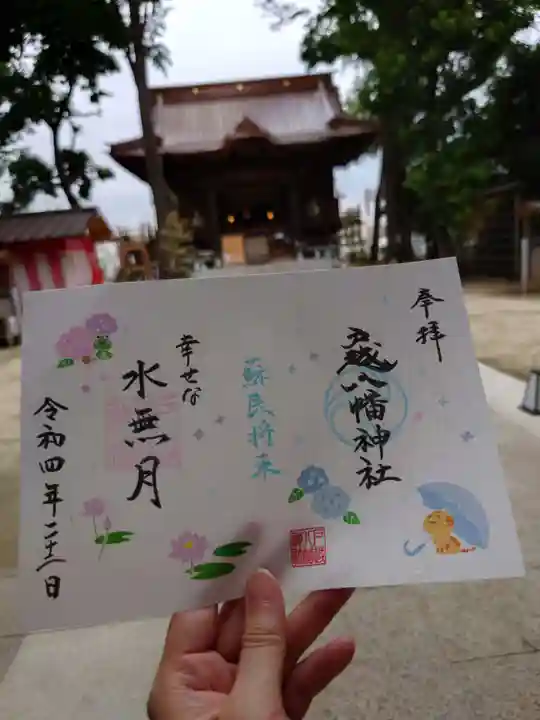 奉拝
戸越八幡神社
蘇民将来
幸せな
水無月
令和四年六月二十二日